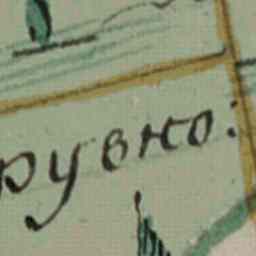 рувно: